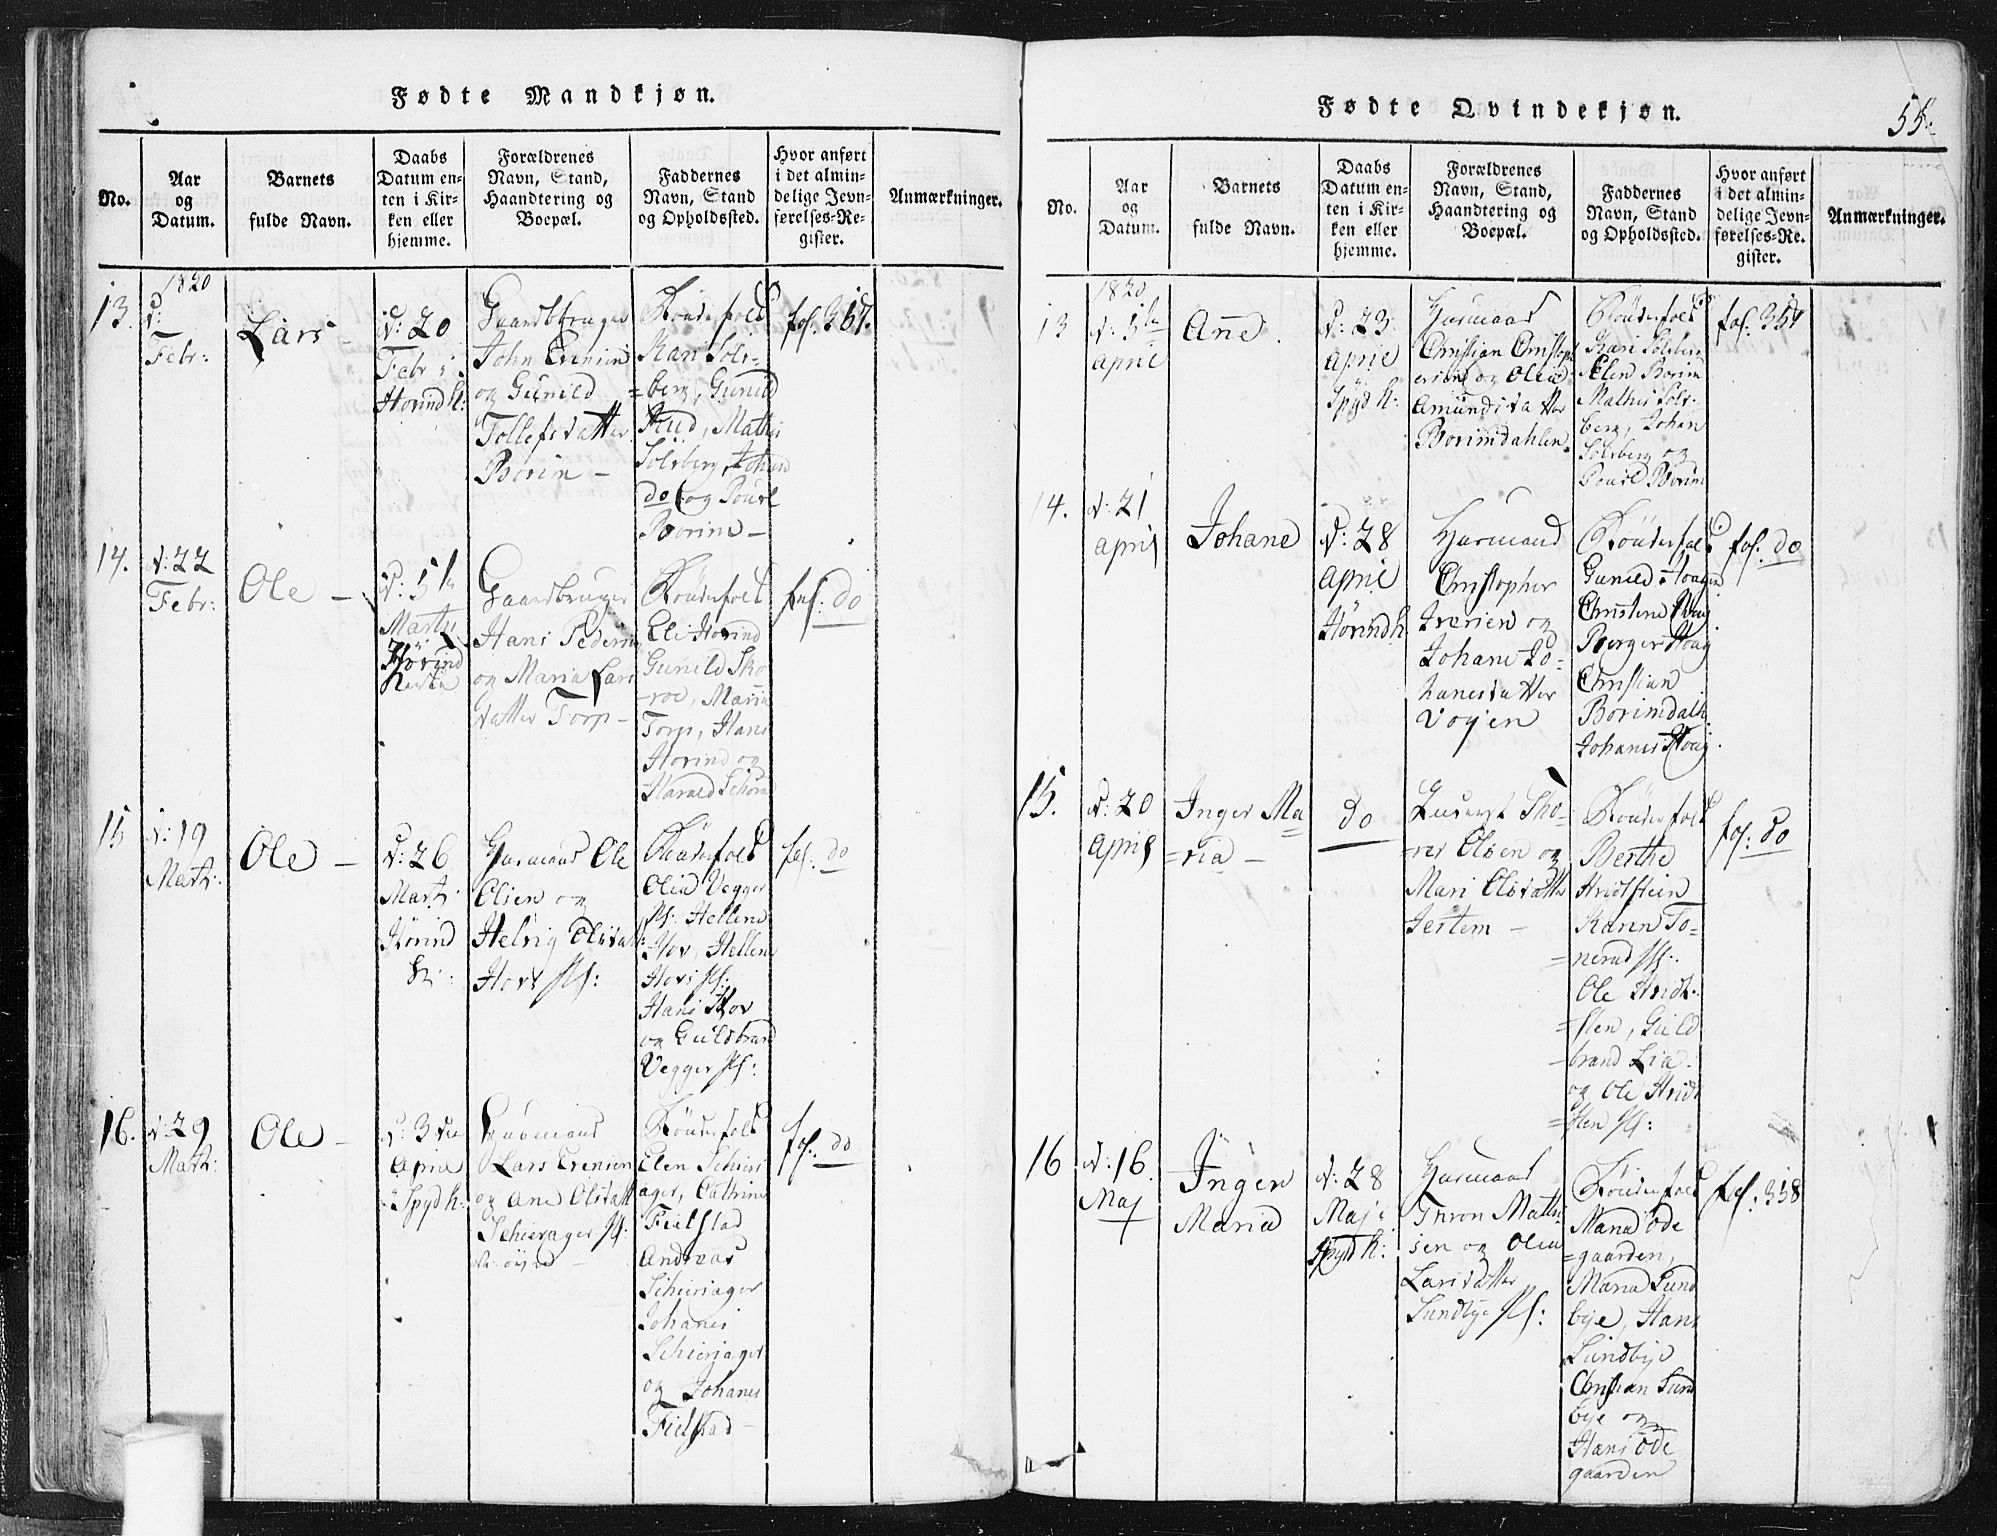 Fødte Mandkjøn.
No.
Aar
og
Datum.
Barnets
fulde Navn.
Daabs
Datum en-
ten i Kir-
ken eller
hjemme.
Forældrenes
Navn, Stand,
Haandtering og
Boepæl.
Faddernes
Navn, Stand
og Opholdssted.
Hvor anført
i det almin-
delige Jevn-
førelses-Re-
gister.
Anmærkninger.
13.
1820
d:
Febr:
Lars
d: 20
Febr i
Horind k:
Gaardbruger
John Evensen
og Gunild
Tollefsdatter
Borin -
Bondefolk
Kari Sols-
=berg, Gunild
Rud, Mathis
Solsberg, Johan
do og Pouel
Borim -
fol. 357.
14.
d: 22
Febr:
Ole -
d: 5te
Martz
Horind
Kirke
Gaardbruger
Hans Pedersen
og Maria Lars
datter Torp -
Bondefolk
Eli Horind
Gunild Sko-
=roe, Maria
Torp, Hans
Horind og
Harald
fol: do
15
d: 19
Marti:
Ole -
d: 26
Marti
Hörind
k:
Huusmand Ole
Olsen og
Helvig Olsdat
Hovs Pl:
Bondefolk
Olia Vegger
Pl: Hellene
Hov, Hellene
Hovs Pl:
Hans Hov
og Guldbrand
Vegger Pl:
fol: do
16.
d: 29
Mart:
Ole -
d: 3die
April
i Spyd k:
Huusmand
Lars Evensen
og Ane Olsdatt
Schieragер Pl:
Bondefolk
Elen Schier
ager, Cathrine
Fielstad
Andreas
Schierager
Johanes
Schierager
og Johanes
Fielstad -
fol: do
Fødte Qvindekjøn.
55.
No.
Aar
og
Datum.
Barnets
fulde Navn.
Daabs
Datum en-
ten i Kir-
ken eller
hjemme.
Forældrenes
Navn, Stand,
Haandtering og
Boepæl.
Faddernes
Navn, Stand
og Opholdssted.
Hvor anført
i det almin-
delige Jevn-
førelses-Re-
gister.
Anmærkninger.
13
1820
d: 5te
April
Anne.
d: 23
April
i Spyd k:
Huusmand
Christian Christoph
ersen og Olea
Amundsdatter
Borimdahlen.
Bondefolk
Kari Solsberg
Elen Borim
Mathis Sols-
berg, Johan
Solsberg og
Pouel Borim
fol. 357
14.
d: 21
April
Johane
d: 28
April
Hörind k.
Huusmand
Christopher
Iversen og
Johane Jo-
hanesdatter
Voyen
Bondefolk
Gunild Houg
Christine Houg
Berger Houg
Christian
Borimdalh.
Johanes Houg.
fol. do
15.
d: 20
April
Inger Ma
=ria -
do
Tho-
rer Olsen og
Mari Olsdatter
Jertem -
Bondefolk
Berthe
Hvidsteen
Karen To-
=nerud Pl:
Ole Hvid-
=sten, Guld
=brand Lia
og Ole Hvid
=sten Pl:
fol. do
16
d: 16
Maj
Inger
Maria
d: 28
Maj i
Spyd k:
Huusmand
Thron Matth
sen og Olea
Larsdatter
Sundbye Pl:
Bondefolk
Maria Öde
=gaarden,
Maria Sund
bye, Hans
Sundbye
Christian Sund
bye og
Hans Öde
gaarden
fol. 358